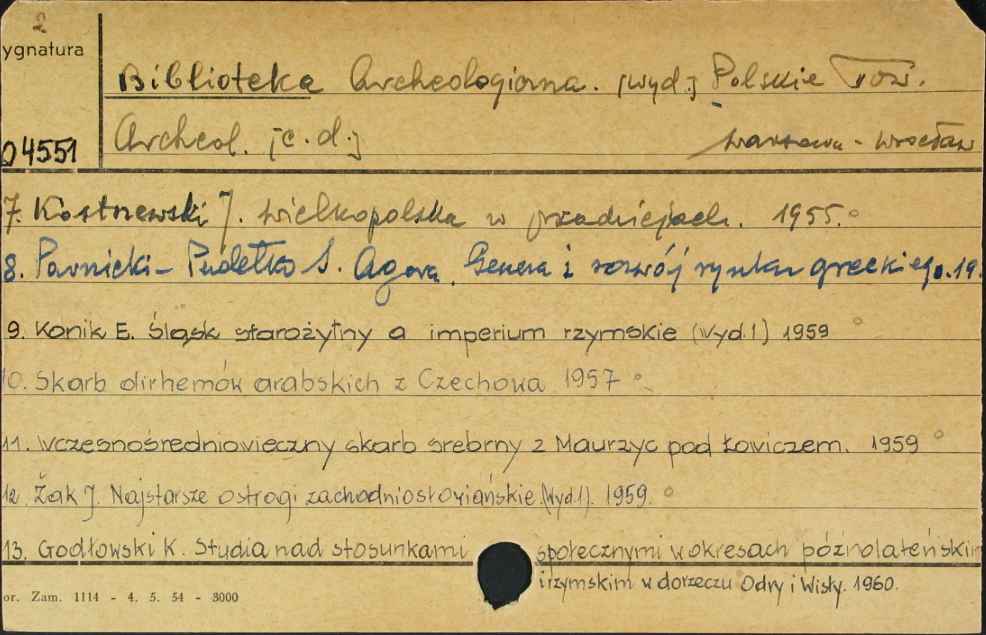 2
ygnatura
Biblioteka Archeologiczna. [wyd.] Polskie Tow.
04551
Archeol. [c.d.]
Warszawa - Wrocław
7. Kostrzewski J. Wielkopolska w pradziejach. 1955.
8. Parnicki-Pudełko S. Agora. Geneza i rozwój rynku greckiego. 19
9. Konik E. Śląsk starożytny a imperium rzymskie (Wyd.1) 1959
10. Skarb dirhemów arabskich z Czechowa 1957
11. Wczesnośredniowieczny skarb srebrny z Maurzyc pod Łowiczem. 1959
12. Żak J. Najstarsze ostrogi zachodniosłowiańskie (Wyd.1). 1959.
13. Godłowski K. Studia nad stosunkami społecznymi w okresach późnolateńskim
i rzymskim w dorzeczu Odry i Wisły. 1960.
or. Zam. 1114 - 4. 5. 54 - 3000